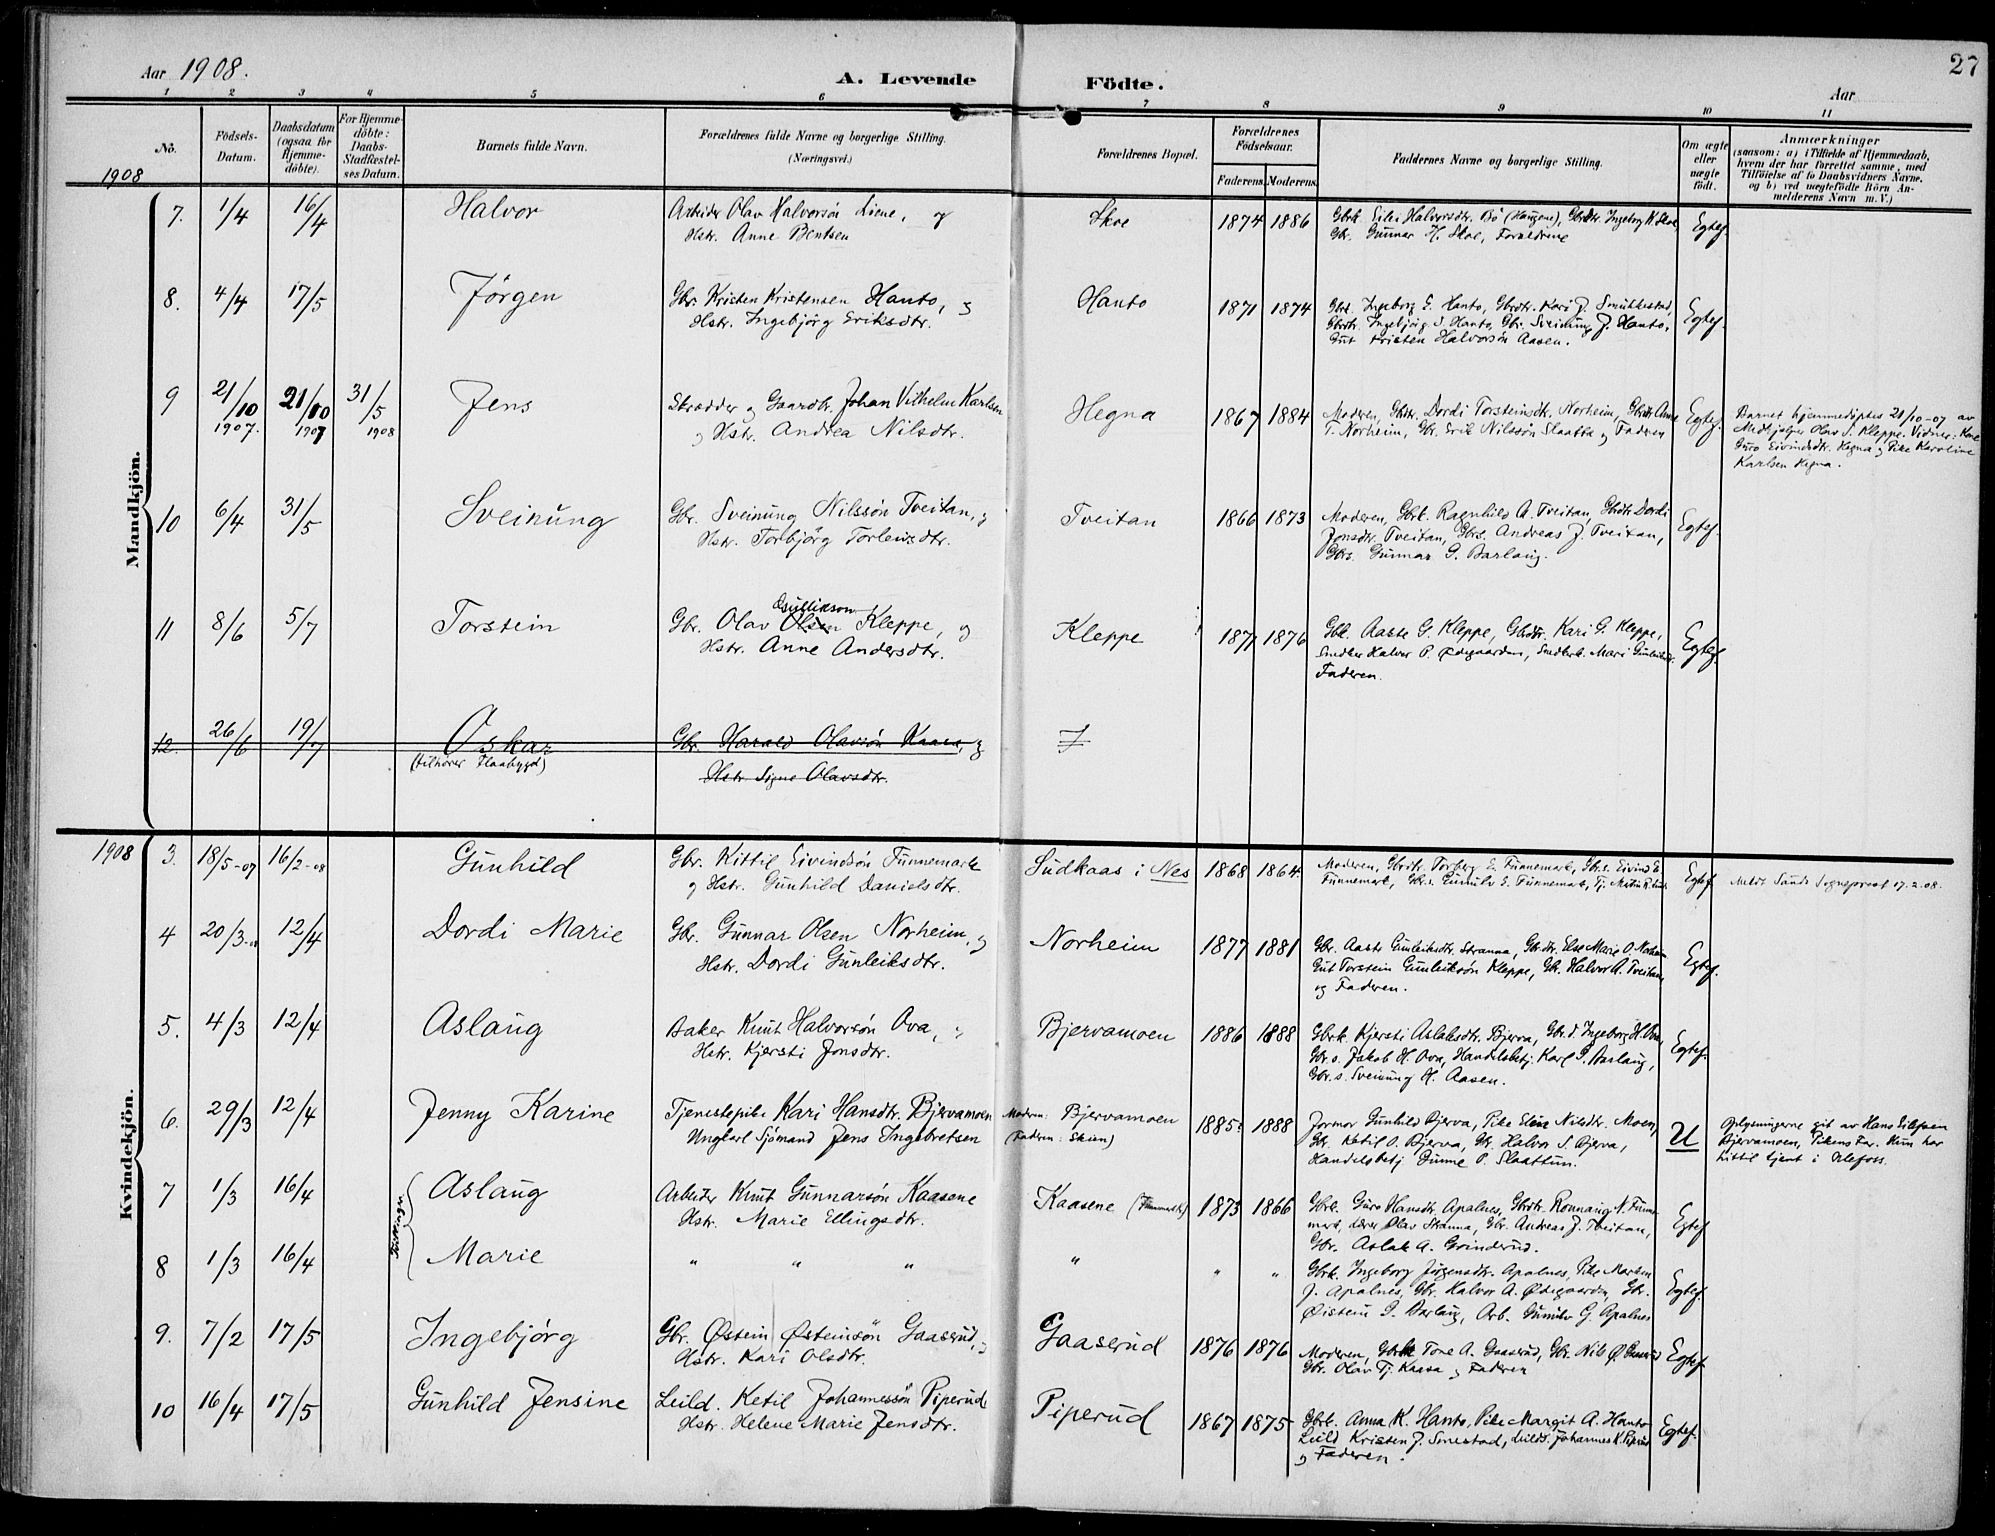 Aar 1908.
A. Levende Födte.
27
Aar
1 2 3 4 5 6 7 8 9 10 11
No.
Födsels-Datum.
Daabsdatum (ogsaa for Hjemme-döbte).
For Hjemme-döbte: Daabs-Stadfæstel-ses Datum.
Barnets fulde Navn.
Forældrenes fulde Navne og borgerlige Stilling.
(Næringsvei.)
Forældrenes Bopæl.
Forældrenes Födselsaar.
Faderens. Moderens.
Faddernes Navne og borgerlige Stilling.
Om ægte eller uægte födt.
Anmærkninger
(saasom: a) i Tilfælde af Hjemmedaab,
hvem der har forrettet samme, med
Tilföielse af to Daabsvidners Navne,
og b) ved uægtefödte Börn An-
melderens Navn m. V.)
1908
Mandkjön.
7. 1/4 16/4 Halvor Arbeider Olav Halvorsön Liene, og Skoe 1874 1886 Egtef.
Hstr. Anne Bentsen
Gbr. Gunnar H. Skoe, Forældrene
8. 4/4 17/5 Jörgen Gbr. Kristen Kristensen Hanto, og Hanto 1871 1874 Gbrk. Ingeborg E. Hanto, Gbrdtr. Kari J. Smukkestad, Egtef.
Hstr. Ingebjörg Eriksdtr. Gbrdtr. Ingebjörg S. Hanto, Gbr. Sveinung J. Hanto,
Gut Kristen Halvorsön Aasen.
9 21/10 1907. 21/10 1907 31/5 1908 Jens Skrædder og Gaardbr. Johan Vilhelm Karlsen Hegna 1867 1884 Moderen, Gbdtr. Dordi Torsteinsdtr. Norheim, Gbrdtr. Anne Egtef. Barnet hjemmedöptes 21/10-07 av
og Hstr. Andrea Nilsdtr. T. Norheim, Gbr. Erik Nilssön Slaatta og Faderen Medhjelper Olav S. Kleppe. Vidner: Kone
Guro Eivindsdtr. Hegna og Pike Karoline
Karlsen Hegna.
10 6/4 31/5 Sveinung Gbr. Sveinung Nilssön Tveitan, og Tveitan 1866 1873 Moderen, Gbrk. Ragnhild A. Tveitan, Gbrdtr. Dordi Egtef.
Hstr. Torbjörg Torleivsdtr. Jonsdtr. Tveitan, Gbrs. Andreas J. Tveitan,
Gbrs. Gunnar G. Barlaug.
11 8/6 5/7 Torstein Gbr. Olav Olsen Kleppe, og Kleppe 1871 1876 Gbk. Aaste G. Kleppe, Gbrdtr. Kari G. Kleppe, Egtef.
Hstr. Anne Andersdtr. Snedker Halvor P. Ödegaarden, Snedkerk. Mari
Faderen.
12. 26/6 19/7 Oskar Gbr. Harald Olavsön Kaasa, og
(tilhörer Flaabygd) Hstr. Signe Olavsdtr.
1908
Kvindekjön.
3. 18/5-07 16/2-08 Gunhild Gbr. Kittil Eivindsön Funnemark Sudkaas i Nes 1868 1864 Moderen, Gbrdtr. Torberg E. Funnemark, Gbr.s. Eivind E. Egtef. Meldt Sands Sogneprest 17.2.08.
og Hstr. Gunhild Danielsdtr. Funnemark, Gbr.s. Gunulv E. Funnemark,
4 20/3-08 12/4 Dordi Marie Gbr. Gunnar Olsen Norheim, og Norheim 1877 1881 Gbr. Aaste Gunleiksdtr. Stranna, Gbrdtr. Else Marie O. Norheim Egtef.
Hstr. Dordi Gunleiksdtr. Gut Torstein Gunleiksön Kleppe, Gbr. Halvor A. Tveitan,
og Faderen.
5. 4/3 12/4 Aslaug Baker Knut Halvorsön Ova, " Bjervamoen 1886 1888 Gbrk. Kjersti Aslaksdtr. Bjerva, Gbr.d. Ingeborg H. Ova, Egtef.
Hstr. Kjersti Jonsdtr. Gbr.s. Jakob H. Ova, Handelsbetj. Karl P. Barlaug,
Gbr.s. Sveinung H. Aasen.
6. 29/3 12/4 Jenny Karine Tjenestepike Kari Hansdtr. Bjervamoen Moderen: Bjervamoen 1885 1888 Jormor Gunhild Bjerva, Pike Eline Nilsdtr. Moen, U Oplysningerne git av Hans Eilefsen
Ungkarl Sjömand Jens Ingebretsen (Faderen: Skien) Gbr. Ketil O. Bjerva, Gbr. Halvor S. Bjerva, Bjervamoen, Pikens Far. Hun har
Handelsbetj. P. Slaattun. hittil tjent i Ulefoss.
Tvillinger
7 1/3 16/4 Aslaug Arbeider Knut Gunnarsön Kaasene Kaasene (Funnemark) 1873 1866 Gbrk. Guro Hansdtr. Apalnes, Gbrdtr. Rönnaug N. Funne- Egtef
Hstr. Marie Ellingsdtr. mark, Lærer Olav Stranna, Gbr. Andreas J. Tveitan,
Gbr. Aslak A. Grinderud.
8 1/3 16/4 Marie " " " " " " Gbrk. Ingeborg Jörgensdtr. Apalnes, Pike Maren Egtef.
J. Apalnes, Gbr. Halvor A. Ödegaarden, Gbr.
Öistein P. Barlaug, Arb. Gunulv G. Apalnes
9. 7/2 17/5 Ingebjörg Gbr. Östein Östeinsön Gaaserud, og Gaaserud 1876 1876 Moderen, Gbrk. Tone A. Gaaserud, Gbr. Nils Ö. Gaaserud Egtef.
Hstr. Kari Olsdtr. Gbr. Olav Tj. Kaasa og Faderen
10 16/4 17/5 Gunhild Jensine Leild. Ketil Johannessön Piperud Piperud 1867 1875 Gbrk. Anna K. Hanto, Pike Margit A. Hanto Egtef.
Hstr. Helene Marie Jensdtr. Leild Kristen J. Smestad, Leilds. Johannes K. Piperud
og Faderen.